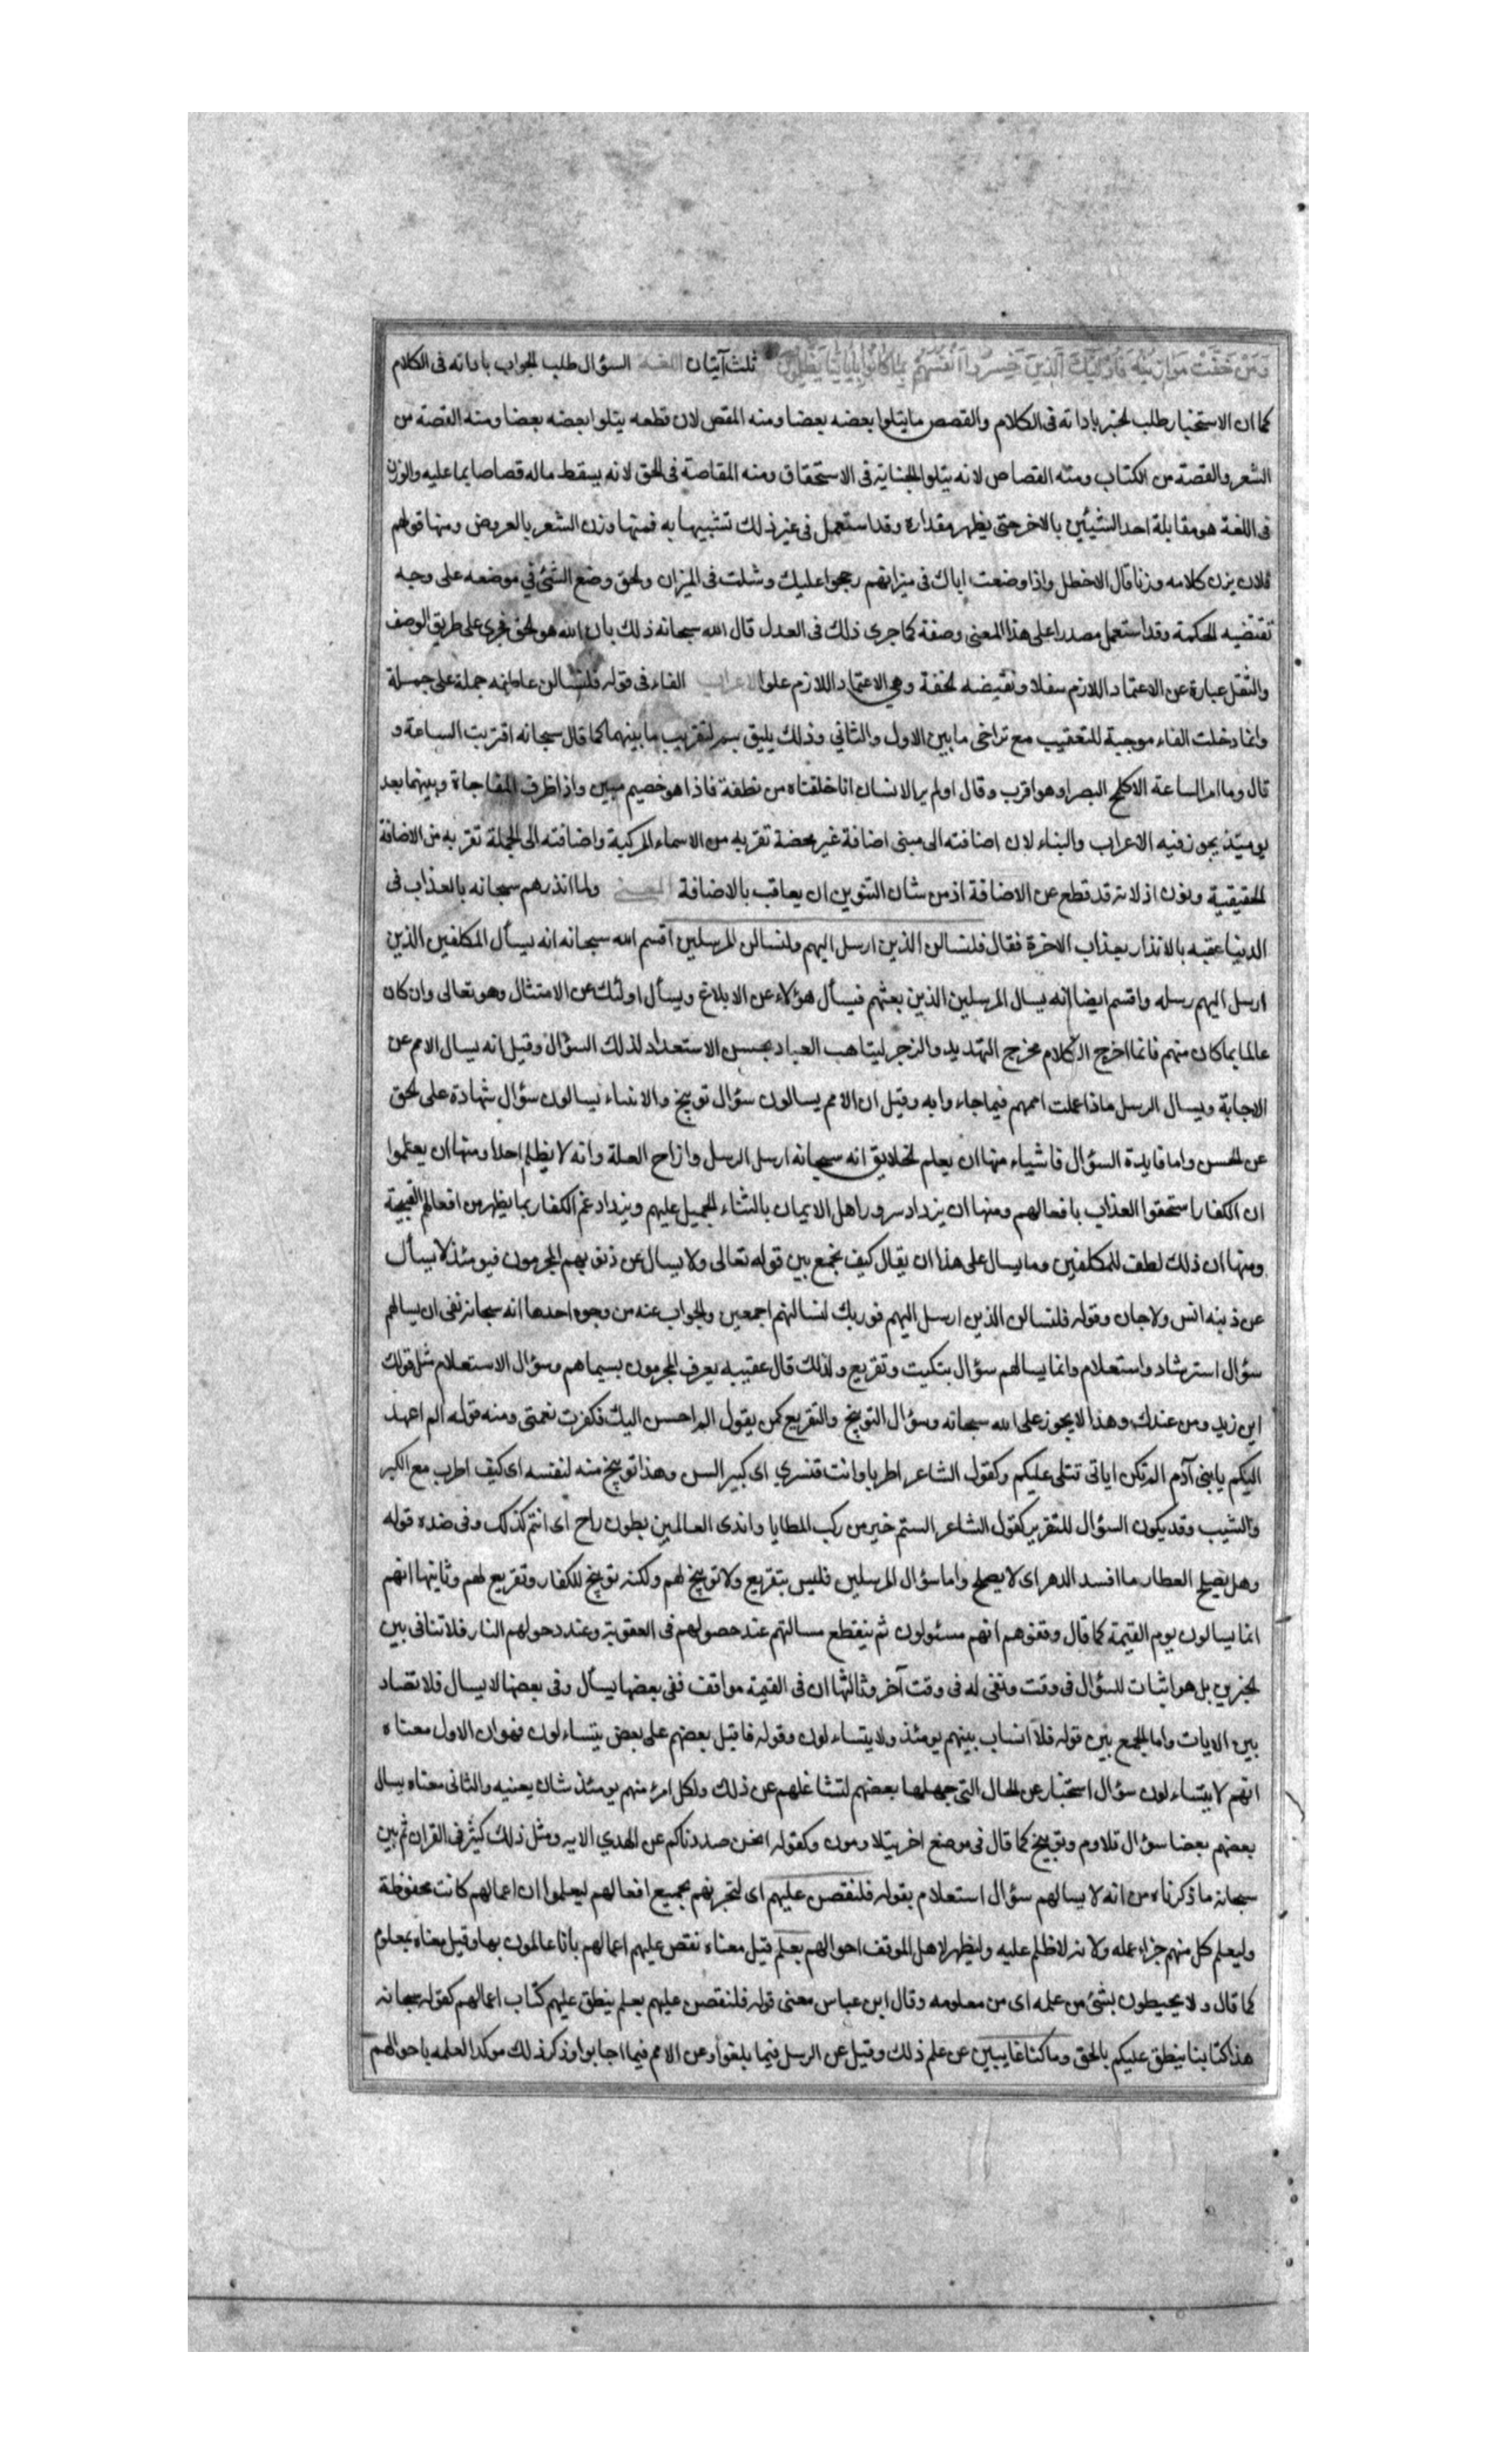 وَمَنْ خَفَّتْ مَوَازِينُهُ فَأُولَٰئِكَ الَّذِينَ خَسِرُوا أَنْفُسَهُمْ بِمَا كَانُوا بِآيَاتِنَا يَظْلِمُونَ ثلث آيتان اللغة السؤال طلب الجواب باداته فى الكلام
كما ان الاستخبار طلب الخبر باداته فى الكلام والقصص ما يتلوا بعضه بعضا ومنه المقص لان قطعه يتلوا بعضه بعضا ومنه القصة من
الشعر والقصة من الكتاب ومنه القصاص لانه يتلوا الجناية فى الاستحقاق ومنه المقاصة فى الحق لانه يسقط ماله قصاصا بما عليه والوزن
فى اللغة هو مقابلة احد الشيئين بالاخر حتى يظهر مقداره وقد استعمل فى غير ذلك تشبيها به فمنها وزن الشعر بالعروض ومنها قولهم
فلان يزن كلامه وزنا قال الاخطل واذا وضعت اباك فى ميزانهم رجحوا عليك وشلت فى الميزان والحق وضع الشئ في موضعه على وجه
تقتضيه الحكمة وقد استعمل مصدرا على هذا المعنى وصفة كما جرى ذلك فى العدل قال الله سبحانه ذلك بان الله هو الحق فجرى على طريق الوصف
والثقل عبارة عن الاعتماد اللازم سفلا ونقيضه الخفة وهي الاعتماد اللازم علوا الاعراب الفاء فى قوله فلنسالن عاطفه جملة على جملة
وانما دخلت الفاء موجبة للتعقيب مع تراخى ما بين الاول والثاني وذلك يليق بسر لتقريب ما بينهما كما قال سبحانه اقتربت الساعة و
قال وما امر الساعة الا كلمح البصر او هو اقرب وقال اولم ير الانسان انا خلقناه من نطفة فاذا هو خصيم مبين واذا ظرف المفاجاة وبينهما بعد
يومئذ يجوز فيه الاعراب والبناء لان اضافته الى مبنى اضافة غير محضة تقربه من الاسماء المركبة واضافته الى الجملة تقربه من الاضافة
الحقيقية ونون اذ لانه قد قطع عن الاضافة اذ من شان التنوين ان يعاقب بالاضافة المعنى ولما انذرهم سبحانه بالعذاب فى
الدنيا عقبه بالانذار بعذاب الاخرة فقال فلنسالن الذين ارسل اليهم ولنسالن المرسلين اقسم الله سبحانه انه يسأل المكلفين الذين
ارسل اليهم رسله واقسم ايضا انه يسال المرسلين الذين بعثهم فيسأل هؤلاء عن الابلاغ ويسأل اولئك عن الامتثال وهو تعالى وان كان
عالما بما كان منهم فانما اخرج الكلام مخرج التهديد والزجر ليتاهب العباد بحسن الاستعداد لذلك السؤال وقيل انه يسال الامم عن
الاجابة ويسال الرسل ماذا عملت اممهم فيما جاءوا به وقيل ان الامم يسالون سؤال توبيخ والانبياء يسالون سؤال شهادة على الحق
عن الحسن واما فايدة السؤال فاشياء منها ان يعلم الخلايق انه سبحانه ارسل الرسل وازاح العلة وانه لا يظلم احدا ومنها ان يعلموا
ان الكفار استحقوا العذاب بافعالهم ومنها ان يزداد سرور اهل الايمان بالثناء الجميل عليهم ويزداد غم الكفار بما يظهر من افعالهم القبيحة
ومنها ان ذلك لطف للمكلفين ومما يسال على هذا ان يقال كيف يجمع بين قوله تعالى ولا يسال عن ذنوبهم المجرمون فيومئذ لا يسأل
عن ذنبه انس ولا جان وقوله فلنسالن الذين ارسل اليهم فوربك لنسالنهم اجمعين والجواب عنه من وجوه احدها انه سبحانه نفى ان يسالهم
سؤال استرشاد واستعلام وانما يسالهم سؤال تبكيت وتقريع ولذلك قال عقيبه يعرف المجرمون بسيماهم وسؤال الاستعلام مثل قولك
اين زيد ومن عندك وهذا لا يجوز على الله سبحانه وسؤال التوبيخ والتقريع كمن يقول الم احسن اليك فكفرت نعمتى ومنه قوله الم اعهد
اليكم يا بنى آدم الم تكن اياتى تتلى عليكم وكقول الشاعر اطربا وانت قنسري اى كبير السن وهذا توبيخ منه لنفسه اى كيف اطرب مع الكبر
والشيب وقد يكون السؤال للتقرير كقول الشاعر الستم خير من ركب المطايا واندى العالمين بطون راح اى انتم كذلك وفى ضده قوله
وهل يصلح العطار ما افسد الدهر اى لا يصلح واما سؤال المرسلين فليس بتقريع ولا توبيخ لهم ولكنه توبيخ للكفار وتقريع لهم وثانيها انهم
انما يسالون يوم القيمة كما قال وقفوهم انهم مسئولون ثم ينقطع مسالتهم عند حصولهم فى العقوبة وعند دخولهم النار فلا تنافى بين
الخبرين بل هو اثبات للسؤال فى وقت ونفى له فى وقت آخر وثالثها ان فى القيمة مواقف ففى بعضها يسأل وفى بعضها لا يسال فلا تضاد
بين الايات واما الجمع بين قوله فلا انساب بينهم يومئذ ولا يتساءلون وقوله فاقبل بعضهم على بعض يتساءلون فهو ان الاول معناه
انهم لا يتساءلون سؤال استخبار عن الحال التى جهلها بعضهم لتشاغلهم عن ذلك ولكل امرئ منهم يومئذ شان يغنيه والثانى معناه يسال
بعضهم بعضا سؤال تلاوم وتوبيخ كما قال فى موضع اخر يتلاومون وكقوله انحن صددناكم عن الهدي الايه ومثل ذلك كثير فى القران ثم بين
سبحانه ما ذكرناه من انه لا يسالهم سؤال استعلام بقوله فلنقصن عليهم اى لنخبرنهم بجميع افعالهم ليعلموا ان اعمالهم كانت محفوظة
وليعلم كل منهم جزاء عمله ولانه لا ظلم عليه وليظهر لاهل الموقف احوالهم بعلم قيل معناه نقص عليهم اعمالهم بانا عالمون بها وقيل معناه بمعلوم
كما قال ولا يحيطون بشئ من علمه اى من معلومه وقال ابن عباس معنى قوله فلنقصن عليهم بعلم ينطق عليهم كتاب اعمالهم كقوله سبحانه
هذا كتابنا ينطق عليكم بالحق وما كنا غايبين عن علم ذلك وقيل عن الرسل فيما بلغوا وعن الامم فيما اجابوا وذكر ذلك موكدا لعلمه باحوالهم